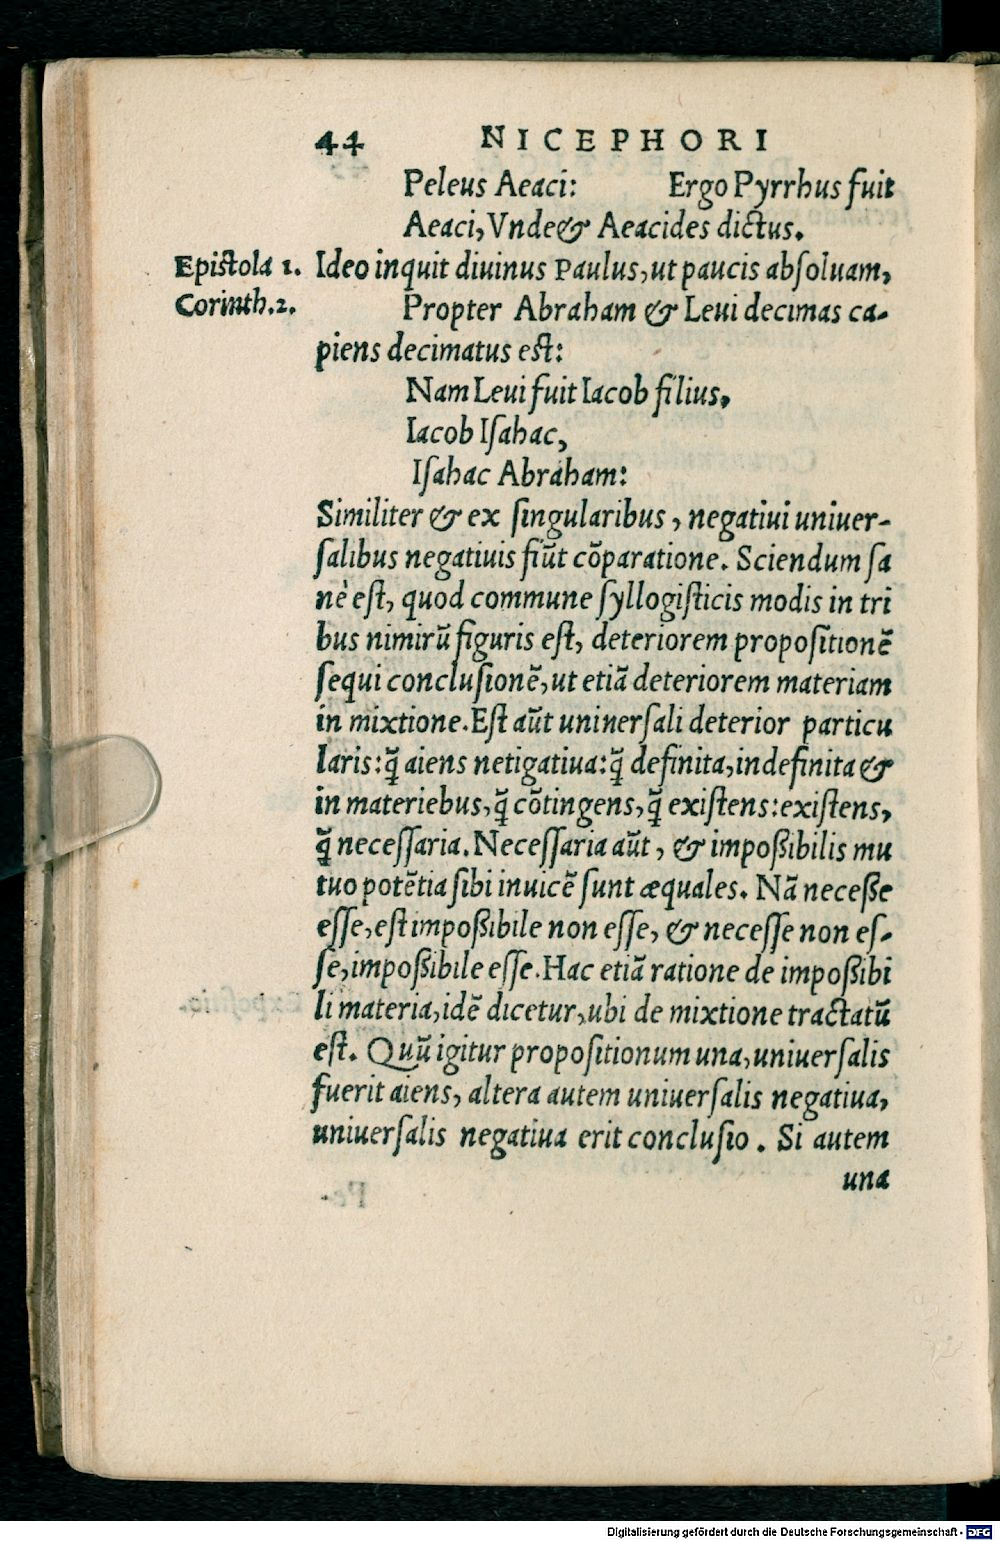 44 NICEPHORI
Peleus Aeaci: Ergo Pyrrhus fuit
Aeaci, Vnde & Aeacides dictus.
Epistola 1. Ideo inquit diuinus Paulus, ut paucis absoluam,
Corinth. 2. Propter Abraham & Leui decimas ca-
piens decimatus est:
Nam Leui fuit Iacob filius,
Iacob Isahac,
Isahac Abraham:
Similiter & ex ſingularibus, negatiui uniuer-
ſalibus negatiuis fiūt cōparatione. Sciendum ſa
nè eſt, quod commune ſyllogiſticis modis in tri
bus nimirū figuris eſt, deteriorem propoſitionē
ſequi concluſionē, ut etiā deteriorem materiam
in mixtione. Eſt aūt uninerſali deterior particu
laris: q̄ aiens netigatiua: q̄ definita, indefinita &
in materiebus, q̄ cōtingens, q̄ exiſtens: exiſtens,
q̄ neceſſaria. Neceſſaria aūt, & impoßibilis mu
tuo potētia ſibi inuicē ſunt æquales. Nā neceße
eſſe, eſt impoßibile non eſſe, & neceſſe non eſ-
ſe, impoßibile eſſe. Hac etiā ratione de impoßibi
li materia, idē dicetur, ubi de mixtione tractatū
eſt. Quū igitur propoſitionum una, uniuerſalis
fuerit aiens, altera autem uniuerſalis negatiua,
uniuerſalis negatiua erit concluſio. Si autem
una
Digitalisierung gefördert durch die Deutsche Forschungsgemeinschaft - DFG